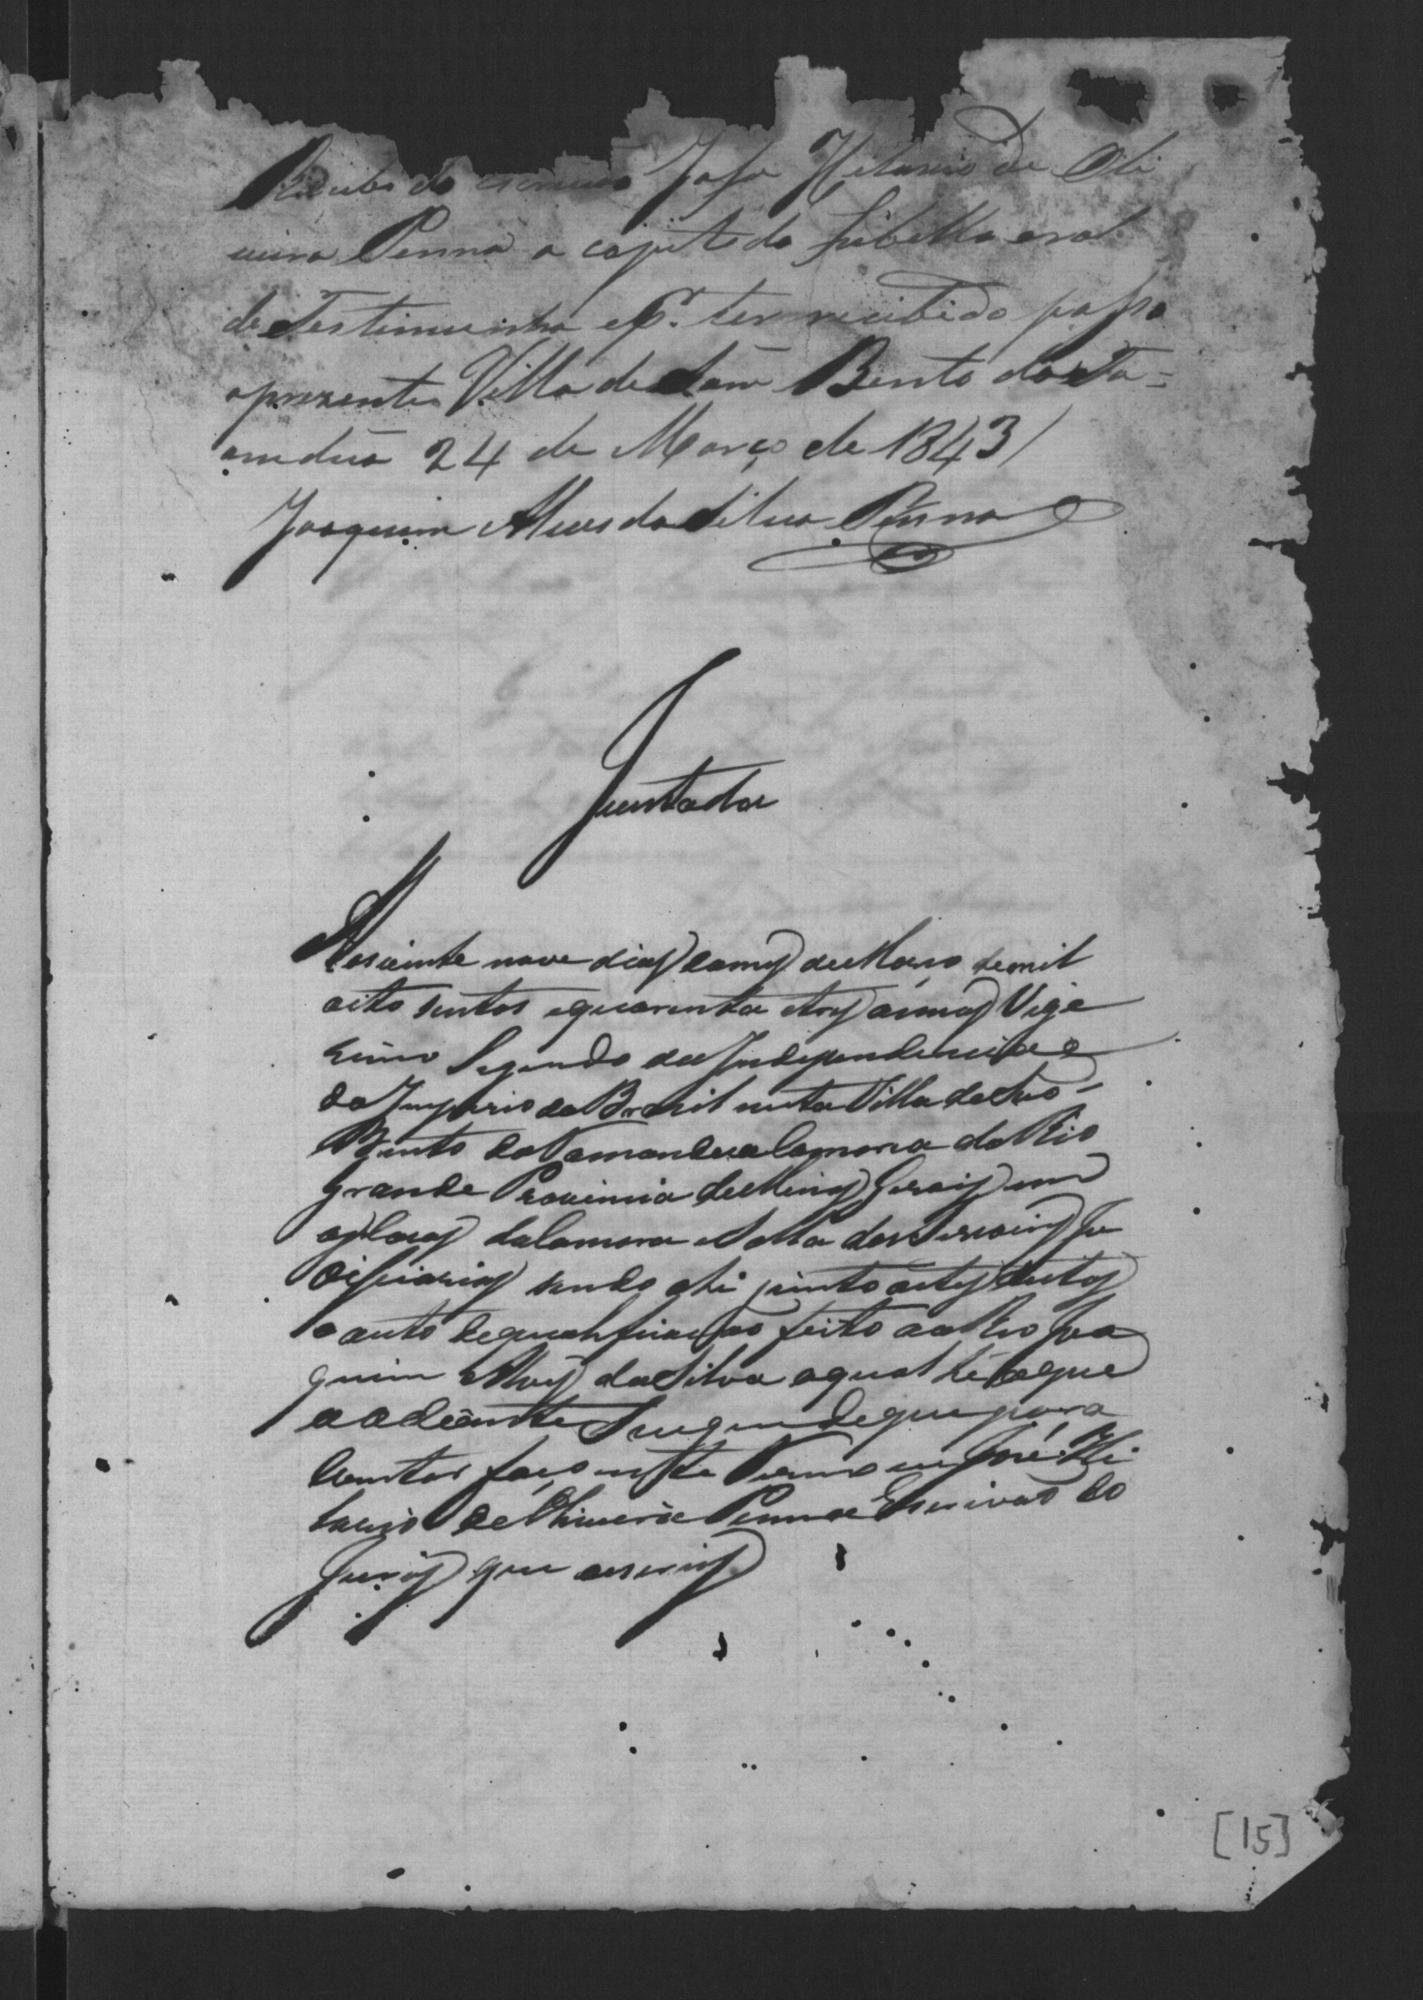 Recebi do escrivão José Hilario de Oli
veira Penna a copia do Libello e rol
de Testimunha e pr. ter recibido passo
aprezente Villa de Sam Bento do Ta=
manduá 24 de Março de 1843/
Joaquim Alves da Silva Penna
Juntada
Aos vinte nove dias do mes de Março de mil
oito sentos e quarenta e tres annos Vige
zimo Segundo da Independencia e
do Imperio do Brazil nesta Villa de São
Bento do Tamandua Comarca do Rio
grande Provincia de Minas Gerais em
os Passos da Camara e Salla das Sessoins Ju
diciarias sendo ahi junto a estes autos
o auto de qualificação feito ao Reo Joa
quim Alves da Silva o qual hé o que
ao diante Segue de que para
constar faço este Termo eu José Hi
lario de Oliveira Penna Escrivão do
Jurÿ que escrevÿ
[15]